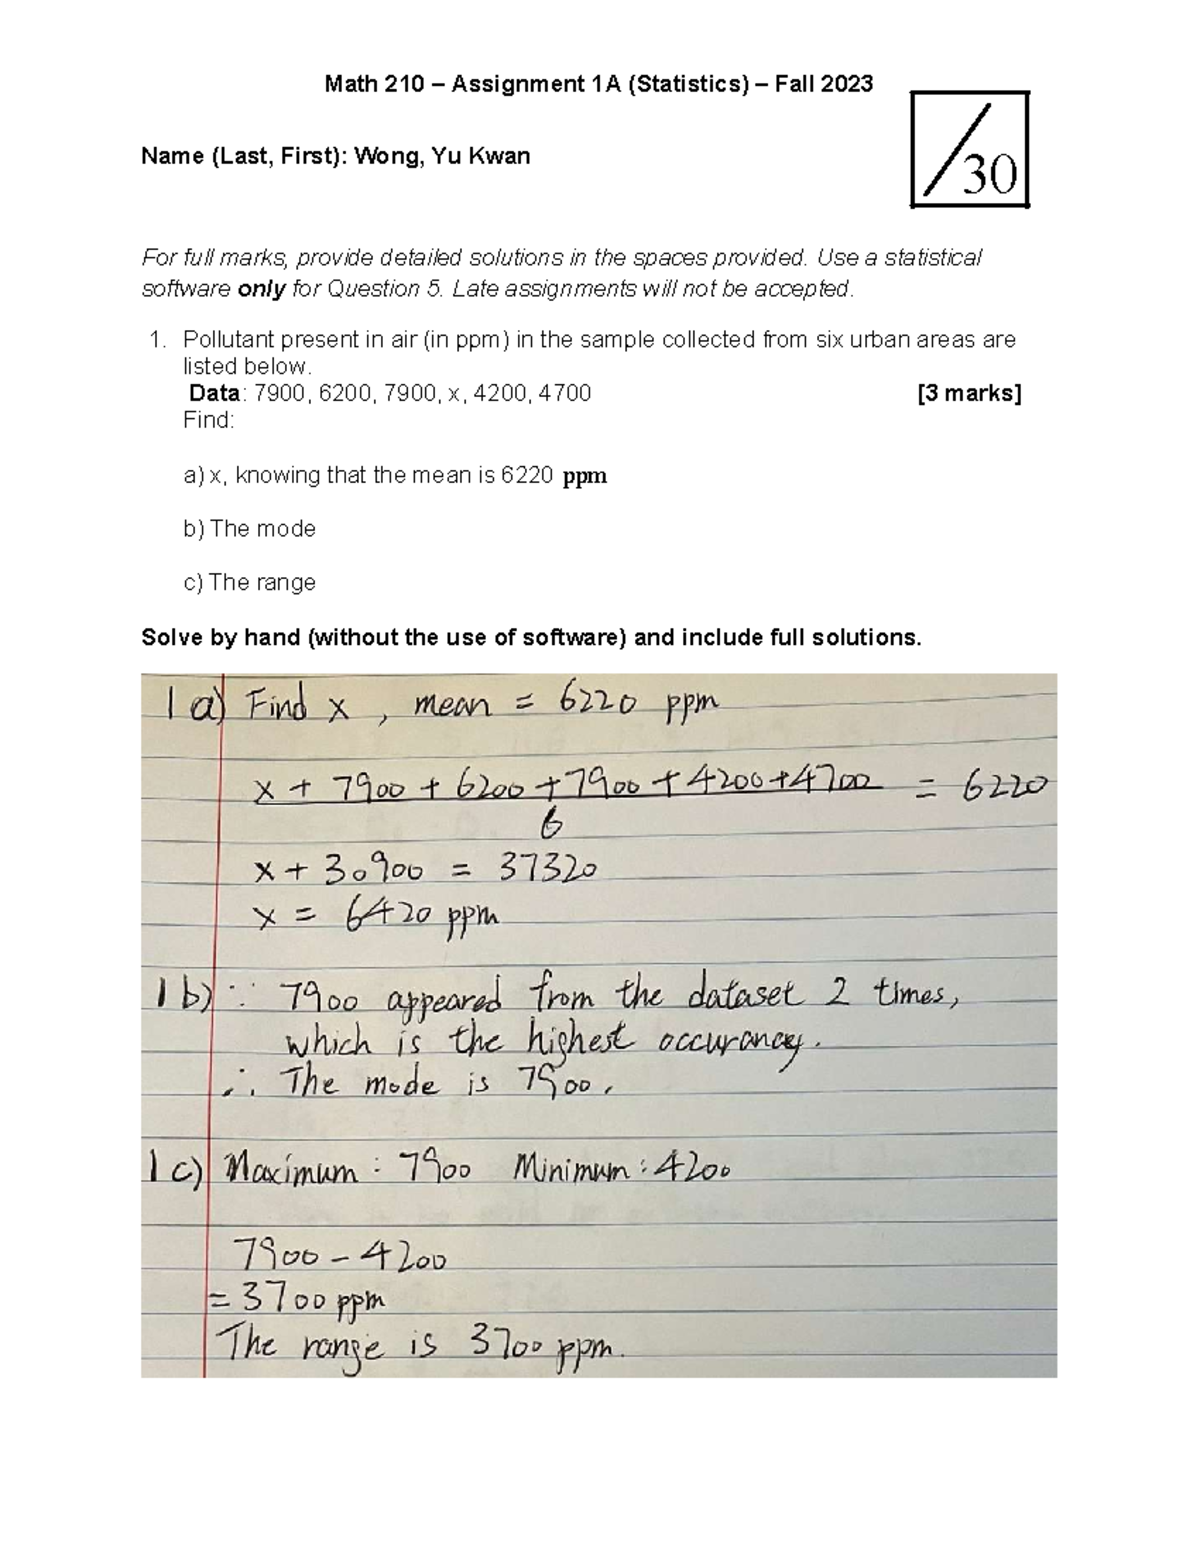 Math 210 – Assignment 1A (Statistics) – Fall 2023
/30
Name (Last, First): Wong, Yu Kwan
For full marks, provide detailed solutions in the spaces provided. Use a statistical
software only for Question 5. Late assignments will not be accepted.
1. Pollutant present in air (in ppm) in the sample collected from six urban areas are
listed below.
Data: 7900, 6200, 7900, x, 4200, 4700 [3 marks]
Find:
a) x, knowing that the mean is 6220 ppm
b) The mode
c) The range
Solve by hand (without the use of software) and include full solutions.
1 a) Find x , mean = 6220 ppm
x + 7900 + 6200 + 7900 + 4200 + 4700 = 6220
6
x + 30900 = 37320
x = 6420 ppm
1 b) ∵ 7900 appeared from the dataset 2 times,
which is the highest occurancy.
∴ The mode is 7900.
1 c) Maximum : 7900 Minimum : 4200
7900 – 4200
= 3700 ppm
The range is 3700 ppm.